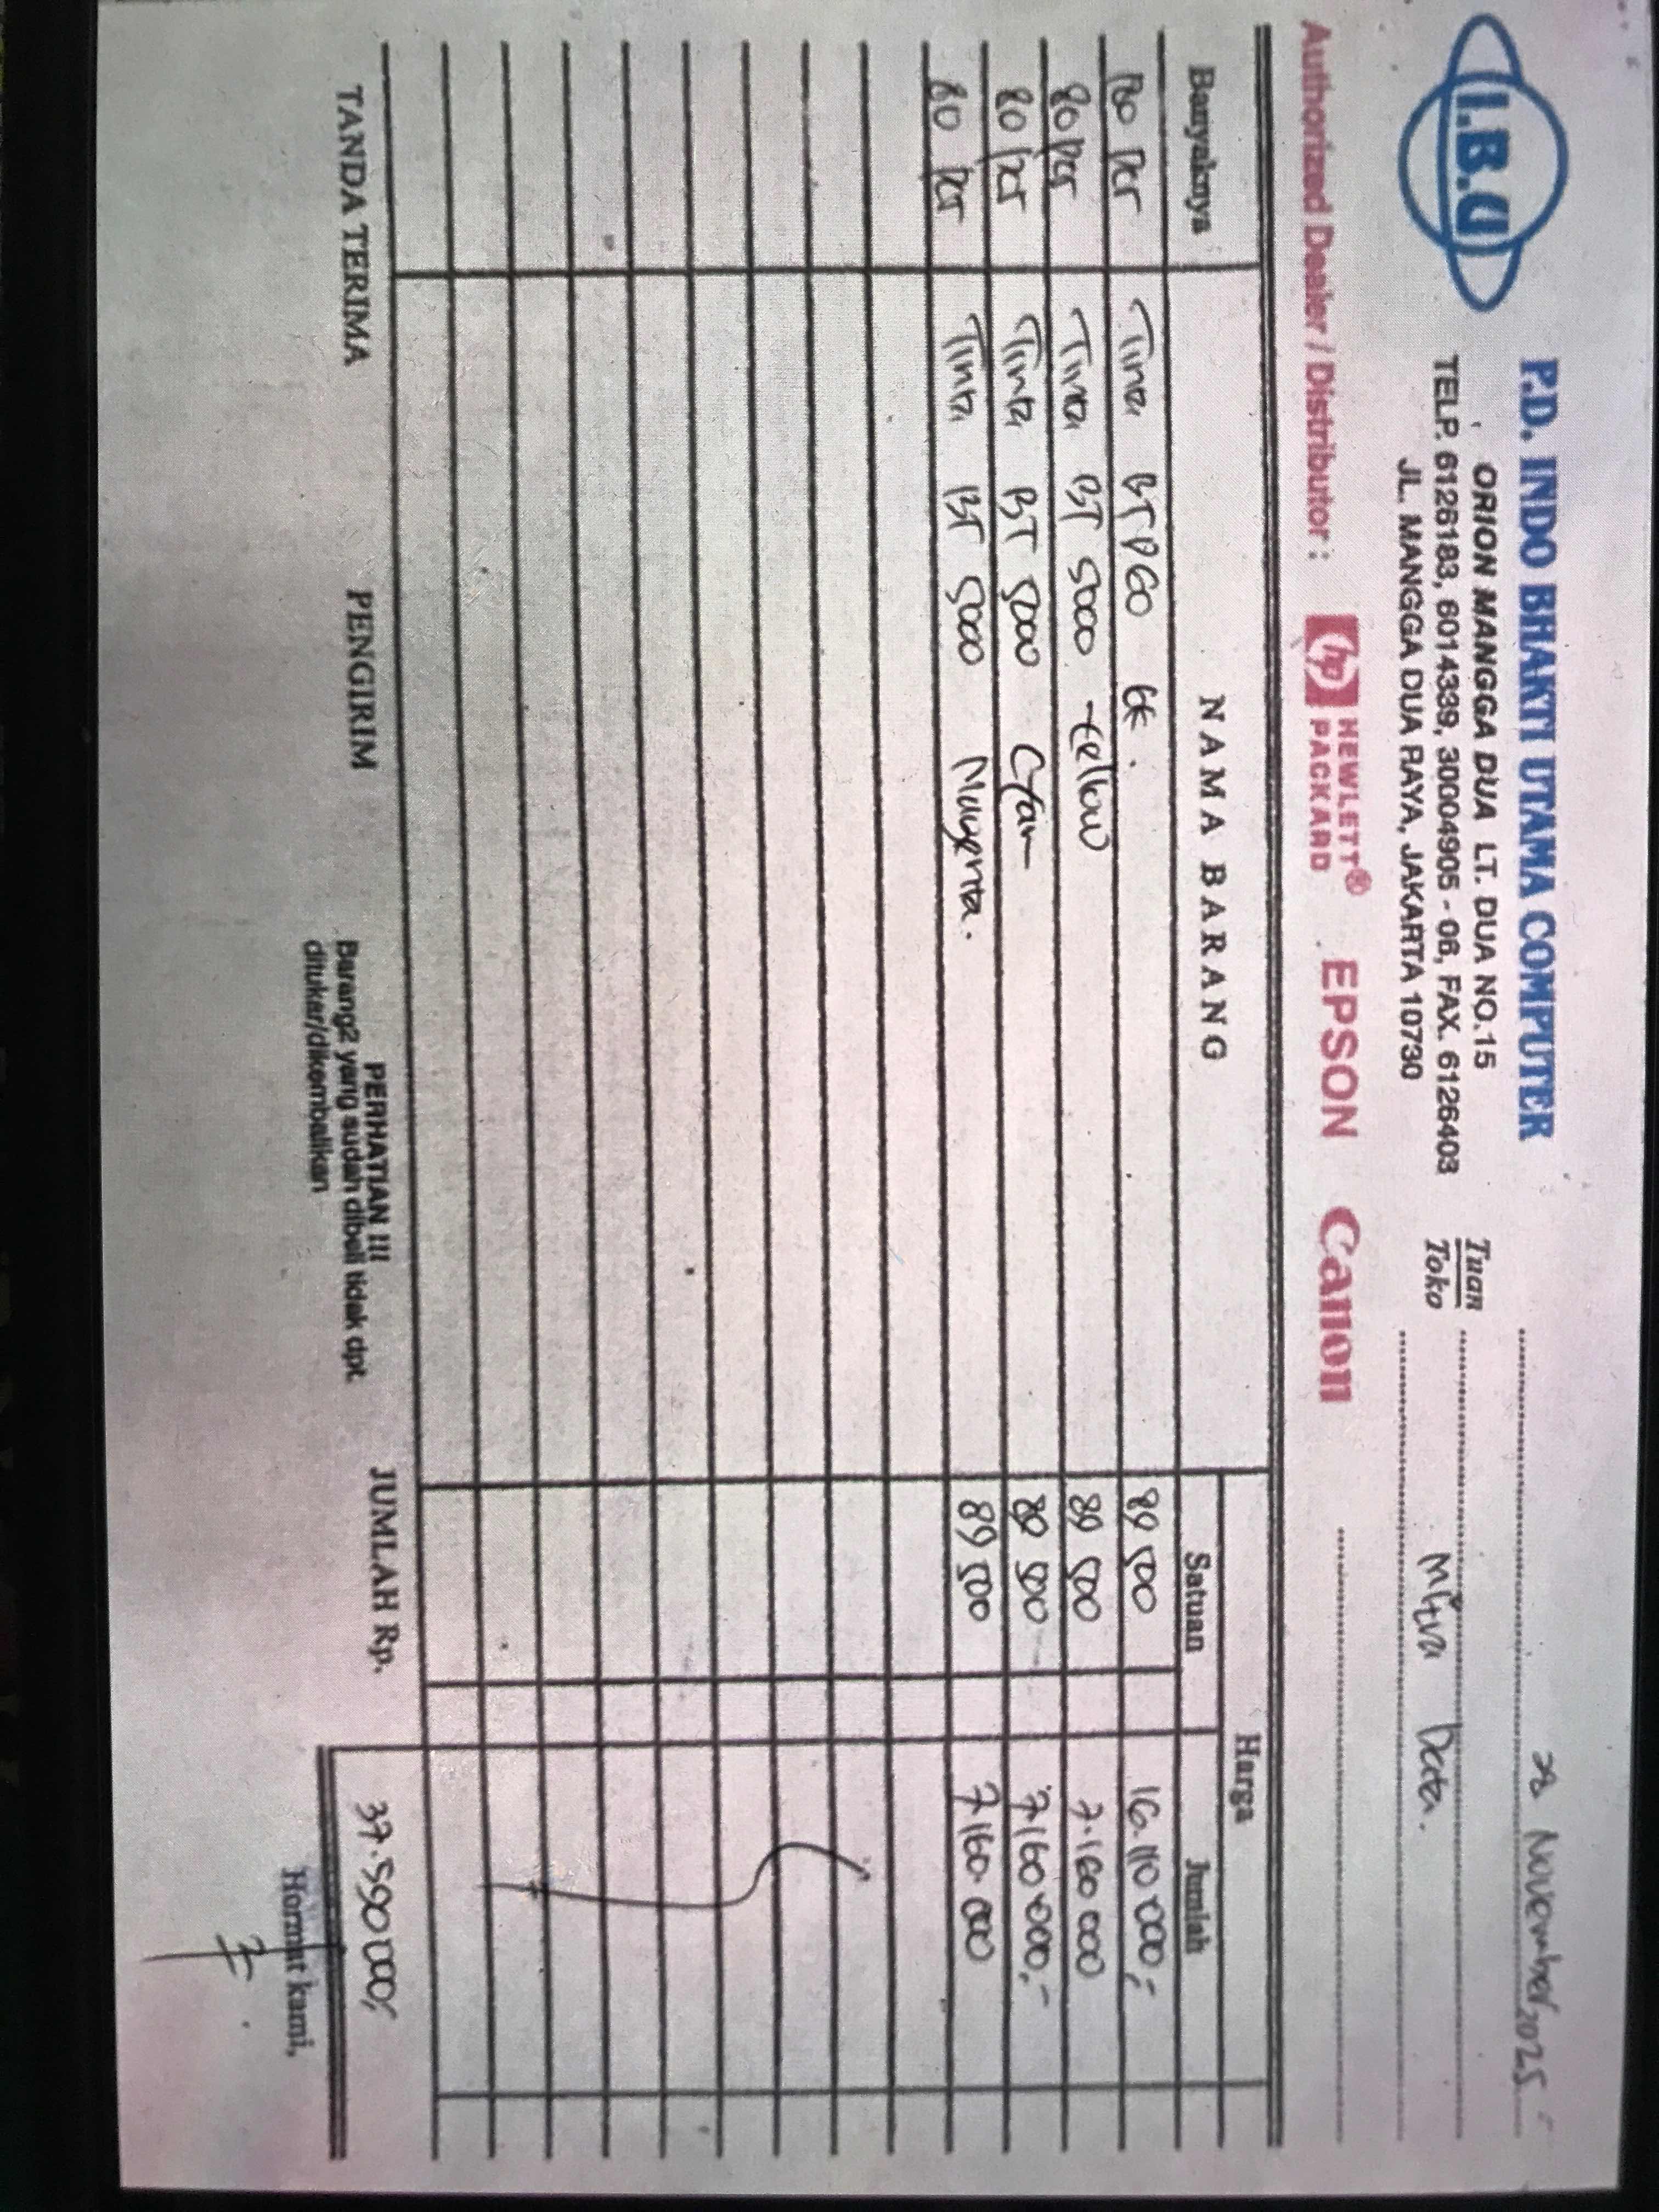 I.B.U
P.D. INDO BHAKTI UTAMA COMPUTER
ORION MANGGA DUA LT. DUA NO.15
TELP. 6126183, 6014339, 30004905 - 06, FAX. 6126403
JL. MANGGA DUA RAYA, JAKARTA 10730
28 November 2025
Tuan
Toko
Mitra Data.
Authorized Dealer / Distributor : hp HEWLETT® PACKARD EPSON Canon
Banyaknya NAMA BARANG Harga
Satuan Jumlah
180 pcs Tinta BTD60 BK. 89 500 16.110 000,-
80 pcs Tinta BT 5000 Yellow 89 500 7.160 000
80 pcs Tinta BT 5000 Cyan 89 500 7.160 000,-
80 pcs Tinta BT 5000 Magenta. 89 500 7.160.000
TANDA TERIMA PENGIRIM PERHATIAN !!! JUMLAH Rp. 37.590 000,-
Barang2 yang sudah dibeli tidak dpt
ditukar/dikembalikan
Hormat kami,